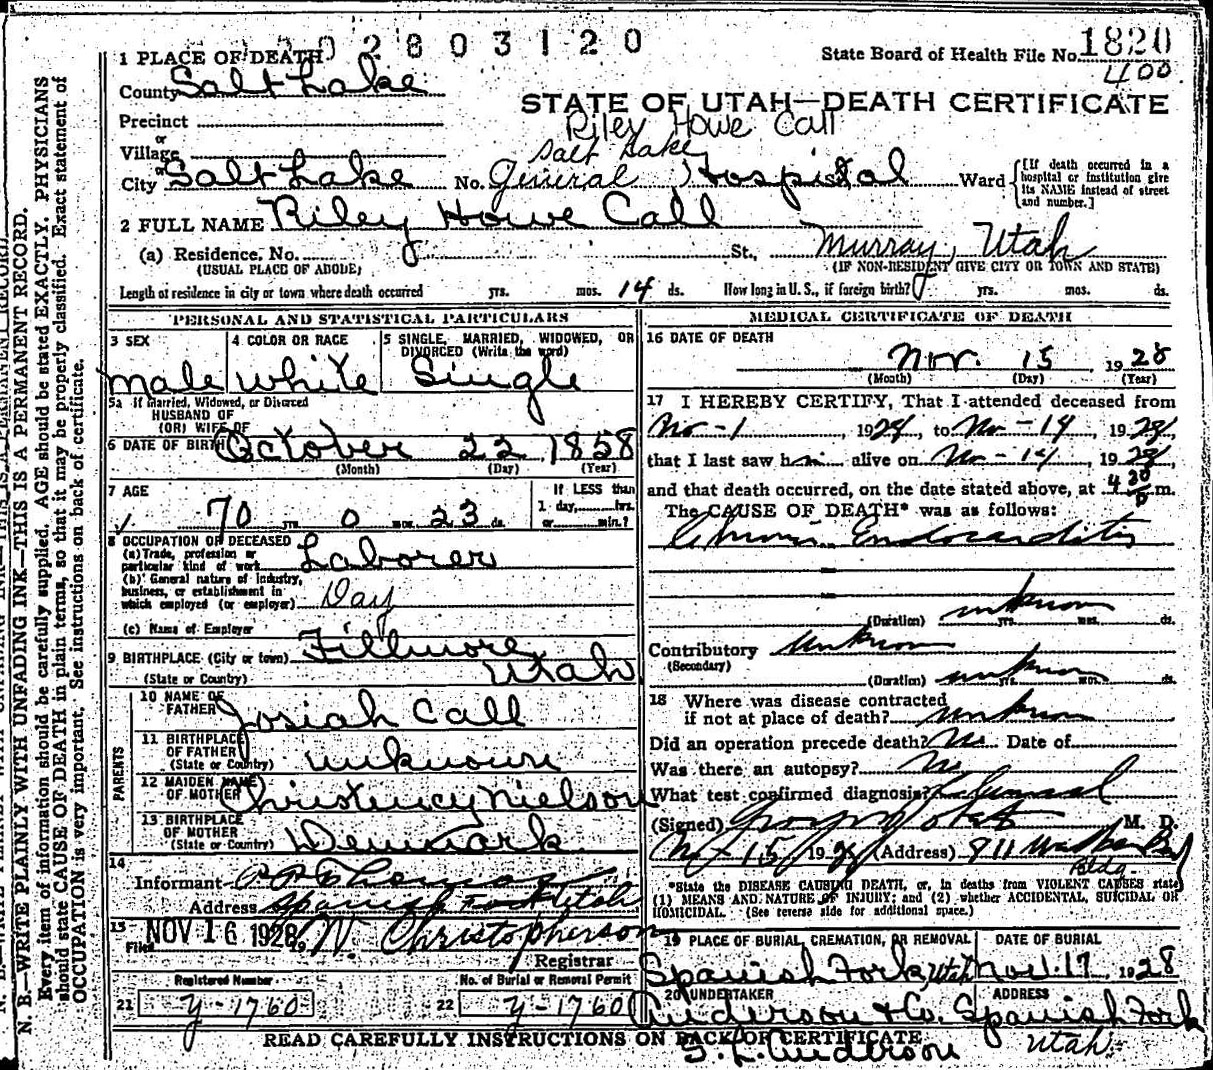 2 0 2 8 0 3 1 2 0
1820
State Board of Health File No.
400
1 PLACE OF DEATH
County Salt Lake
STATE OF UTAH—DEATH CERTIFICATE
Precinct
Riley Howe Call
or
Village
Salt Lake
or
City Salt Lake No. General Hospital Ward
[If death occurred in a hospital or institution give its NAME instead of street and number.]
2 FULL NAME Riley Howe Call
(a) Residence. No. St., Murray, Utah
(USUAL PLACE OF ABODE) (IF NON-RESIDENT GIVE CITY OR TOWN AND STATE)
Length of residence in city or town where death occurred yrs. mos. 14 ds. How long in U. S., if foreign birth? yrs. mos. ds.
PERSONAL AND STATISTICAL PARTICULARS
3 SEX
male
4 COLOR OR RACE
white
5 SINGLE, MARRIED, WIDOWED, OR DIVORCED (Write the word)
Single
5a If Married, Widowed, or Divorced
HUSBAND OF
(OR) WIFE OF
6 DATE OF BIRTH October 22 1858
(Month) (Day) (Year)
7 AGE
70 yrs. 0 mos. 23 ds.
If LESS than
1 day, hrs.
or min.?
8 OCCUPATION OF DECEASED
(a) Trade, profession or
particular kind of work Laborer
(b) General nature of industry,
business, or establishment in
which employed (or employer) Day
(c) Name of Employer
9 BIRTHPLACE (City or town) Fillmore
(State or Country) Utah
PARENTS
10 NAME OF
FATHER Josiah Call
11 BIRTHPLACE
OF FATHER
(State or Country) unknown
12 MAIDEN NAME
OF MOTHER Nielson
13 BIRTHPLACE
OF MOTHER
(State or Country) Denmark
14
Informant
Address Spanish Fork Utah
15
Filed NOV 16 1928 Christopherson
Registrar
Registered Number No. of Burial or Removal Permit
21 y-1760 22 y-1760
MEDICAL CERTIFICATE OF DEATH
16 DATE OF DEATH
Nov. 15 1928
(Month) (Day) (Year)
17 I HEREBY CERTIFY, That I attended deceased from
Nov-1, 1928, to Nov-14, 1928,
that I last saw him alive on Nov-14, 1928
and that death occurred, on the date stated above, at 4 30 p m.
The CAUSE OF DEATH* was as follows:
Chronic Endocarditis
unknown
(Duration) yrs. mos. ds.
Contributory unknown
(Secondary)
unknown
(Duration) yrs. mos. ds.
18 Where was disease contracted
if not at place of death? unknown
Did an operation precede death? No Date of
Was there an autopsy? No
What test confirmed diagnosis?
(Signed) M. D.
Nov-15, 1928 (Address) 911
Bldg.
*State the DISEASE CAUSING DEATH, or, in deaths from VIOLENT CAUSES state
(1) MEANS AND NATURE OF INJURY; and (2) whether ACCIDENTAL, SUICIDAL OR
HOMICIDAL. (See reverse side for additional space.)
19 PLACE OF BURIAL, CREMATION, OR REMOVAL DATE OF BURIAL
Spanish Fork, Utah Nov. 17, 1928
20 UNDERTAKER ADDRESS
Anderson & Co. Spanish Fork
READ CAREFULLY INSTRUCTIONS ON BACK OF CERTIFICATE
Anderson Utah
N. B.—WRITE PLAINLY WITH UNFADING INK—THIS IS A PERMANENT RECORD.
Every item of information should be carefully supplied. AGE should be stated EXACTLY. PHYSICIANS
should state CAUSE OF DEATH in plain terms, so that it may be properly classified. Exact statement of
OCCUPATION is very important. See instructions on back of certificate.